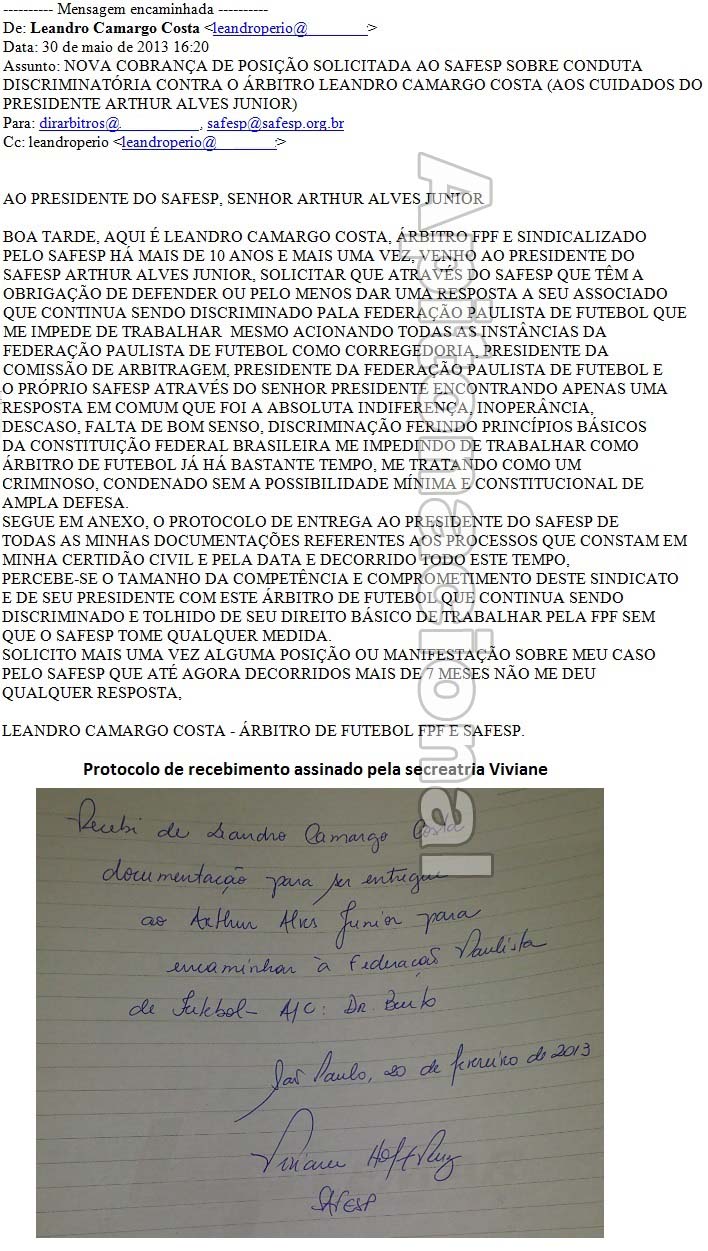 ---------- Mensagem encaminhada ----------
De: Leandro Camargo Costa <leandroperio@ >
Data: 30 de maio de 2013 16:20
Assunto: NOVA COBRANÇA DE POSIÇÃO SOLICITADA AO SAFESP SOBRE CONDUTA
DISCRIMINATÓRIA CONTRA O ÁRBITRO LEANDRO CAMARGO COSTA (AOS CUIDADOS DO
PRESIDENTE ARTHUR ALVES JUNIOR)
Para: dirarbitros@. , safesp@safesp.org.br
Cc: leandroperio <leandroperio@ >
AO PRESIDENTE DO SAFESP, SENHOR ARTHUR ALVES JUNIOR
BOA TARDE, AQUI É LEANDRO CAMARGO COSTA, ÁRBITRO FPF E SINDICALIZADO
PELO SAFESP HÁ MAIS DE 10 ANOS E MAIS UMA VEZ, VENHO AO PRESIDENTE DO
SAFESP ARTHUR ALVES JUNIOR, SOLICITAR QUE ATRAVÉS DO SAFESP QUE TÊM A
OBRIGAÇÃO DE DEFENDER OU PELO MENOS DAR UMA RESPOSTA A SEU ASSOCIADO
QUE CONTINUA SENDO DISCRIMINADO PALA FEDERAÇÃO PAULISTA DE FUTEBOL QUE
ME IMPEDE DE TRABALHAR MESMO ACIONANDO TODAS AS INSTÂNCIAS DA
FEDERAÇÃO PAULISTA DE FUTEBOL COMO CORREGEDORIA, PRESIDENTE DA
COMISSÃO DE ARBITRAGEM, PRESIDENTE DA FEDERAÇÃO PAULISTA DE FUTEBOL E
O PRÓPRIO SAFESP ATRAVÉS DO SENHOR PRESIDENTE ENCONTRANDO APENAS UMA
RESPOSTA EM COMUM QUE FOI A ABSOLUTA INDIFERENÇA, INOPERÂNCIA,
DESCASO, FALTA DE BOM SENSO, DISCRIMINAÇÃO FERINDO PRINCÍPIOS BÁSICOS
DA CONSTITUIÇÃO FEDERAL BRASILEIRA ME IMPEDINDO DE TRABALHAR COMO
ÁRBITRO DE FUTEBOL JÁ HÁ BASTANTE TEMPO, ME TRATANDO COMO UM
CRIMINOSO, CONDENADO SEM A POSSIBILIDADE MÍNIMA E CONSTITUCIONAL DE
AMPLA DEFESA.
SEGUE EM ANEXO, O PROTOCOLO DE ENTREGA AO PRESIDENTE DO SAFESP DE
TODAS AS MINHAS DOCUMENTAÇÕES REFERENTES AOS PROCESSOS QUE CONSTAM EM
MINHA CERTIDÃO CIVIL E PELA DATA E DECORRIDO TODO ESTE TEMPO,
PERCEBE-SE O TAMANHO DA COMPETÊNCIA E COMPROMETIMENTO DESTE SINDICATO
E DE SEU PRESIDENTE COM ESTE ÁRBITRO DE FUTEBOL QUE CONTINUA SENDO
DISCRIMINADO E TOLHIDO DE SEU DIREITO BÁSICO DE TRABALHAR PELA FPF SEM
QUE O SAFESP TOME QUALQUER MEDIDA.
SOLICITO MAIS UMA VEZ ALGUMA POSIÇÃO OU MANIFESTAÇÃO SOBRE MEU CASO
PELO SAFESP QUE ATÉ AGORA DECORRIDOS MAIS DE 7 MESES NÃO ME DEU
QUALQUER RESPOSTA,
LEANDRO CAMARGO COSTA - ÁRBITRO DE FUTEBOL FPF E SAFESP.
Apitonacional
Protocolo de recebimento assinado pela secreatria Viviane
Recebi de Leandro Camargo Costa
documentação para ser entregue
ao Arthur Alves Junior para
encaminhar à Federação Paulista
de Futebol - A/C: Dr.
São Paulo, 20 de fevereiro de 2013
Viviane
SAFESP